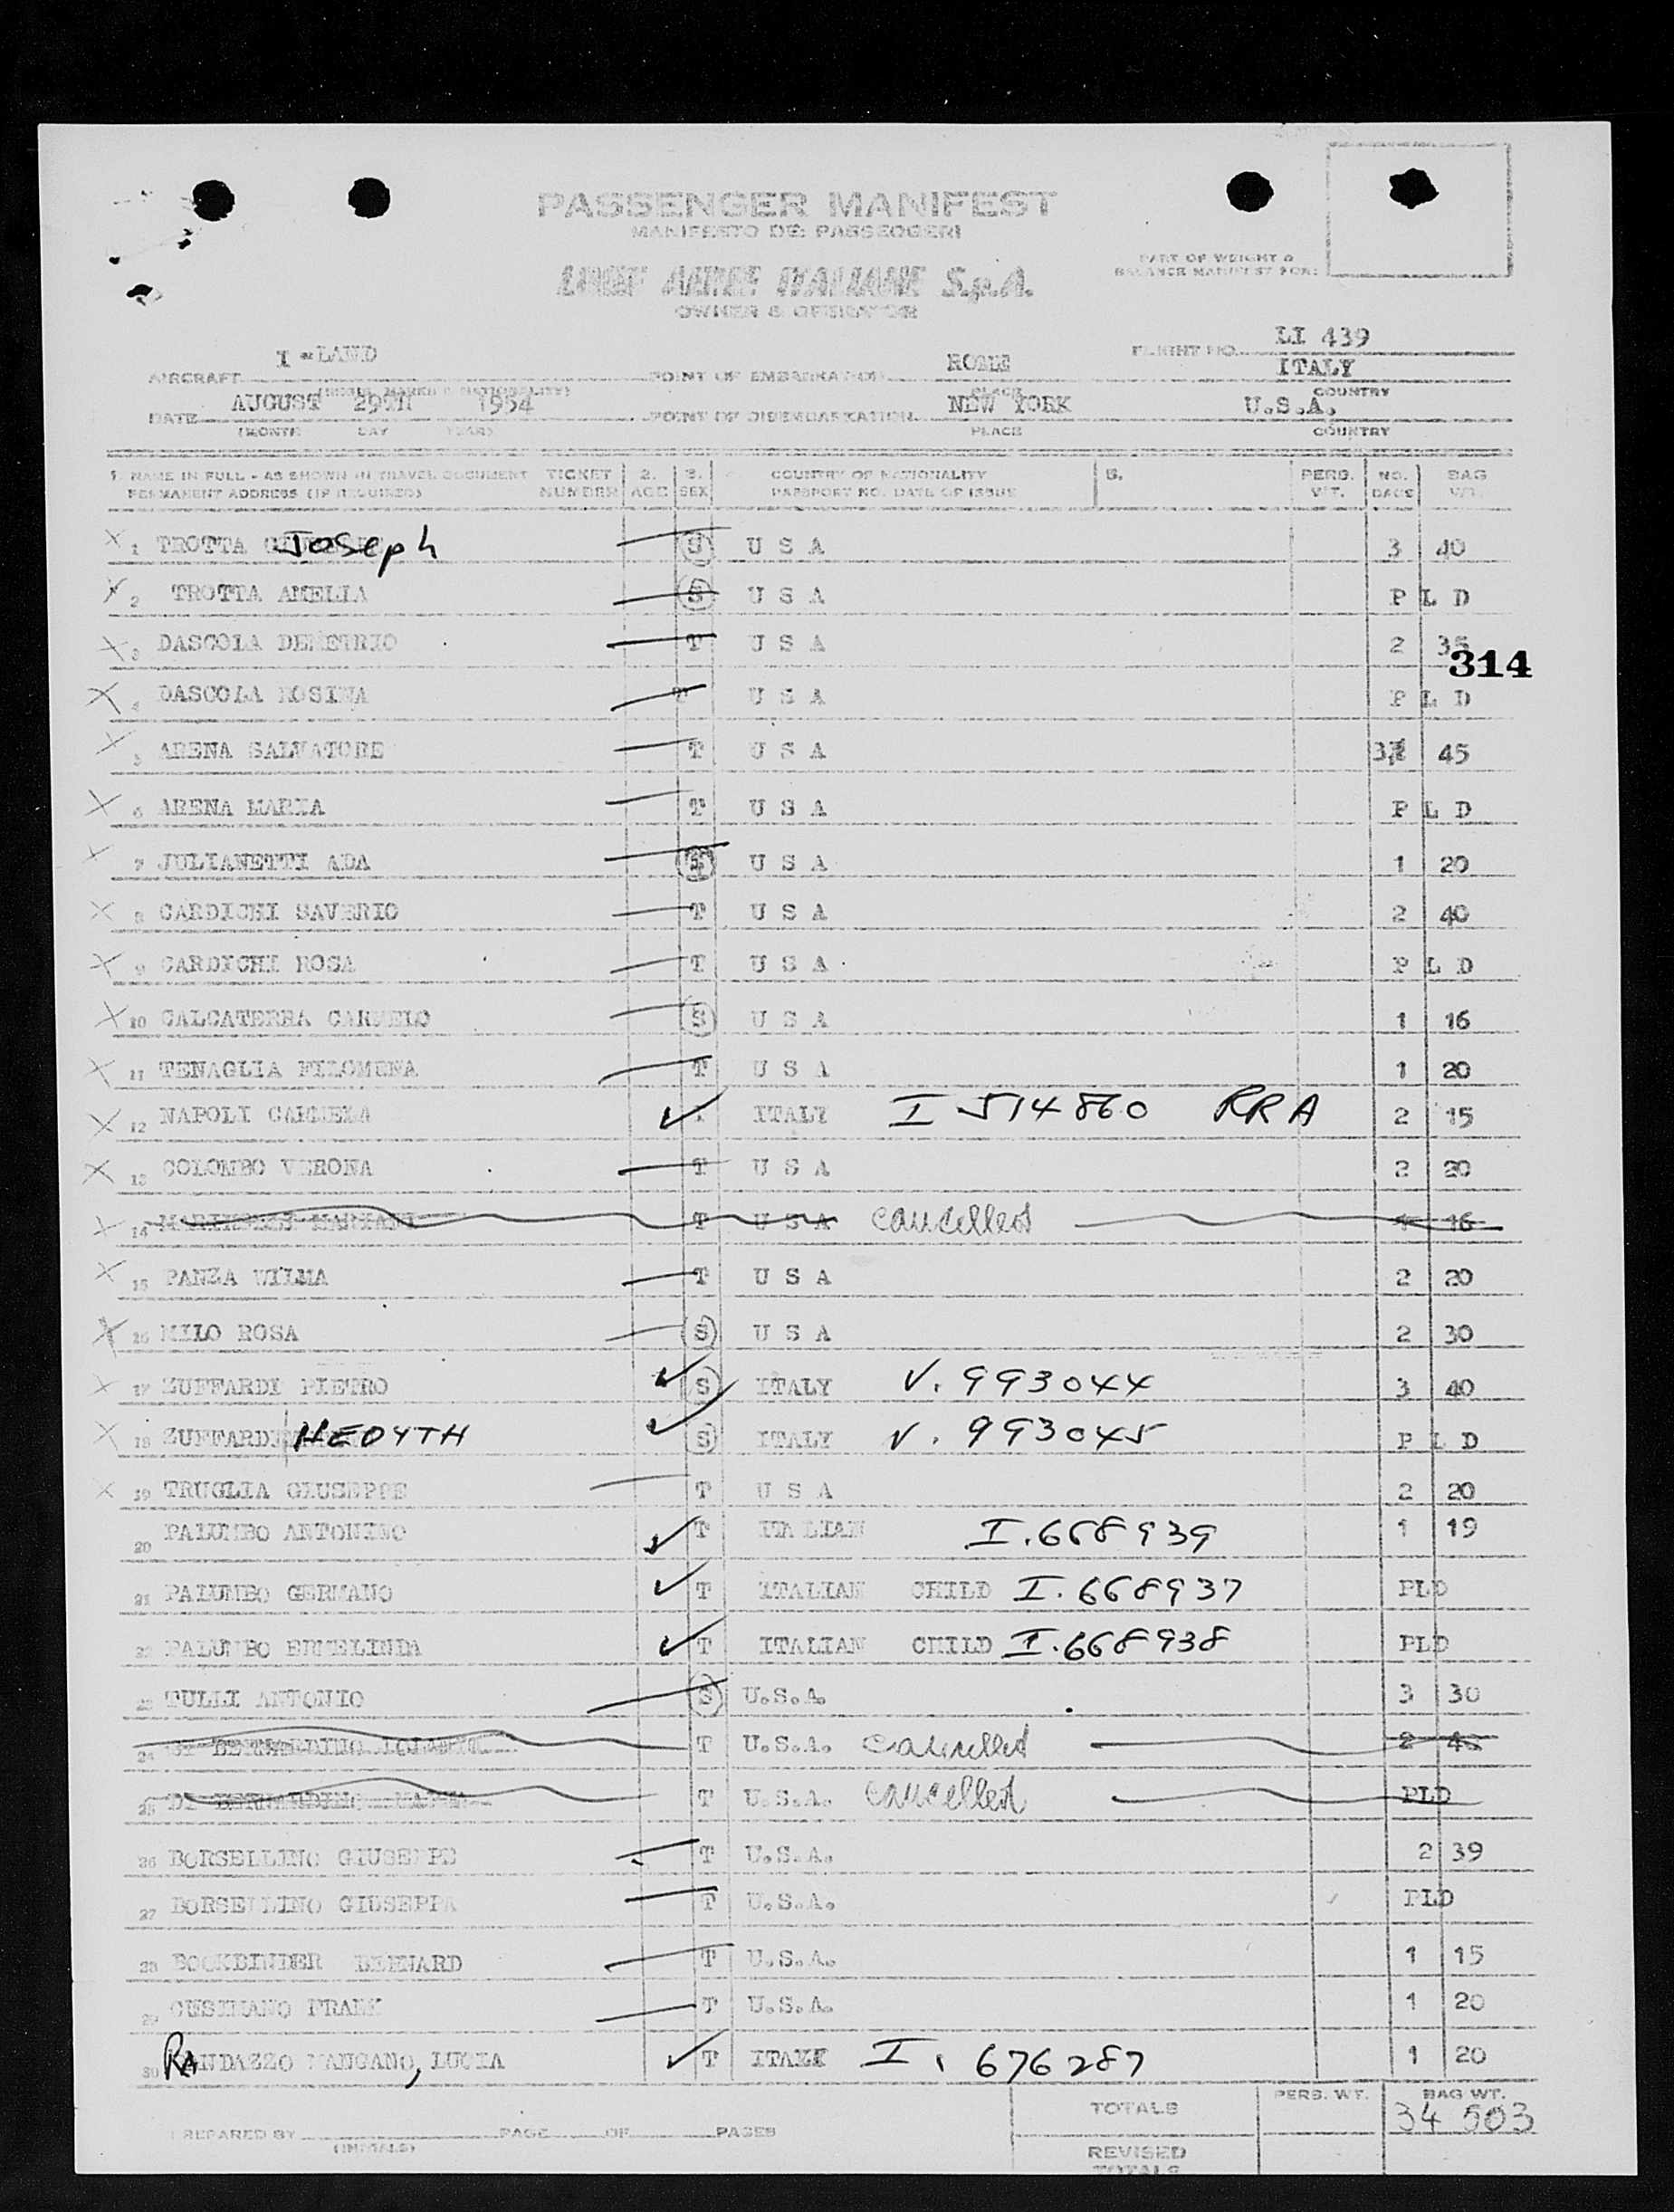 PASSENGER MANIFEST
MANIFESTO DEI PASSEGGERI
LINEE AEREE ITALIANE S.p.A.
OWNER & OPERATOR
PART OF WEIGHT &
BALANCE MANIFEST FOR:
FLIGHT NO. LI 439
AIRCRAFT I - LAND POINT OF EMBARKATION ROME ITALY
PLACE COUNTRY
DATE AUGUST 29TH 1954 POINT OF DISEMBARKATION NEW YORK U.S.A.
(MONTH DAY YEAR) PLACE COUNTRY
1. NAME IN FULL - AS SHOWN IN TRAVEL DOCUMENT TICKET 2. 3. COUNTRY OF NATIONALITY 5. PERS. NO. BAG
PERMANENT ADDRESS (IF REQUIRED) NUMBER AGE SEX PASSPORT NO. DATE OF ISSUE WT. BAGS WT.
X 1 TROTTA Joseph S U S A 3 40
X 2 TROTTA AMELIA S U S A P L D
X 3 DASCOLA DEMETRIO T U S A 2 35
314
X 4 DASCOLA ROSINA T U S A P L D
X 5 ARENA SALVATORE T U S A 3 45
X 6 ARENA MARIA T U S A P L D
7 JULIANETTI ADA U S A 1 20
X 8 CARDICHI SAVERIO T U S A 2 40
X 9 CARDICHI ROSA T U S A P L D
X 10 CALCATERRA CARMELO S U S A 1 16
X 11 TENAGLIA FILOMENA T U S A 1 20
X 12 NAPOLI CARMELA ✓ ITALY I 514860 RRA 2 15
X 13 COLOMBO VERONA T U S A 2 20
X 14 T U S A cancelled 16
X 15 PANZA WILMA T U S A 2 20
X 16 MILO ROSA S U S A 2 30
X 17 ZUFFARDI PIETRO ✓ S ITALY V. 993044 3 40
X 18 ZUFFARDI HEDYTH ✓ S ITALY V. 993045 P L D
X 19 TRUGLIA GIUSEPPE T U S A 2 20
20 PALUMBO ANTONINO ✓ T ITALIAN I.668939 1 19
21 PALUMBO GERMANO ✓ T ITALIAN CHILD I.668937 PLD
22 PALUMBO ERMELINDA ✓ T ITALIAN CHILD I.668938 PLD
23 TULLI ANTONIO S U.S.A. 3 30
24 DI BERNARDINO T U.S.A. cancelled 2
25 DI BERNARDINO T U.S.A. cancelled PLD
26 BORSELLINO GIUSEPPE T U.S.A. 2 39
27 BORSELLINO GIUSEPPA T U.S.A. PLD
28 BOOKBINDER BERNARD T U.S.A. 1 15
29 CUSIMANO FRANK T U.S.A. 1 20
30 RANDAZZO MANCANO, LUCIA ✓ T ITALY I. 676287 1 20
TOTALS PERS. WT. BAG WT.
34 503
PREPARED BY PAGE OF PAGES
(INITIALS)
REVISED
TOTALS